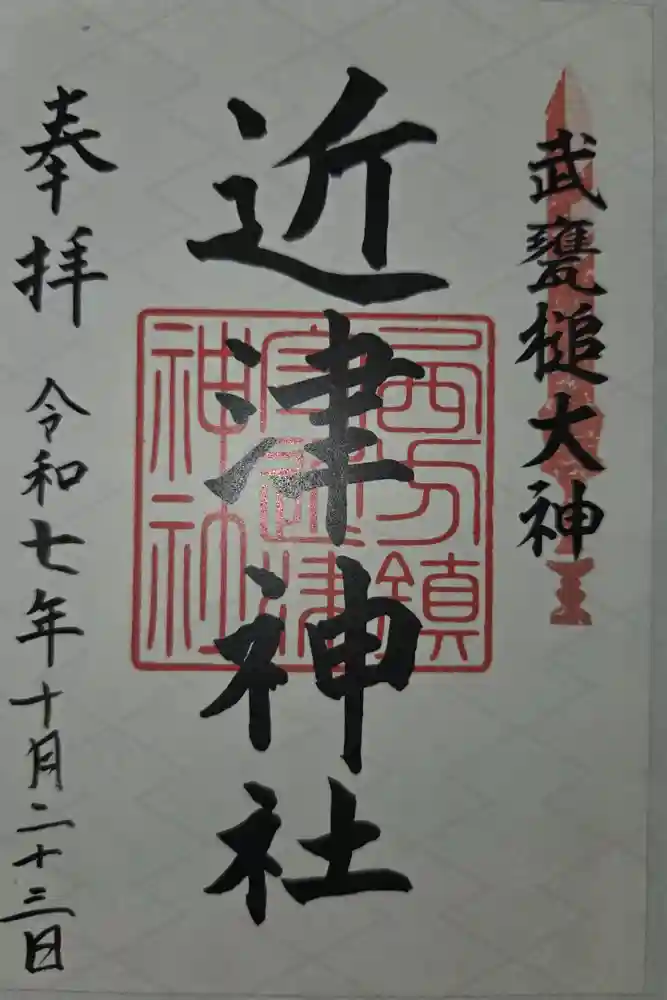 武甕槌大神
近津神社
西方鎮
守近津
神社
奉拝
令和七年十月二十三日